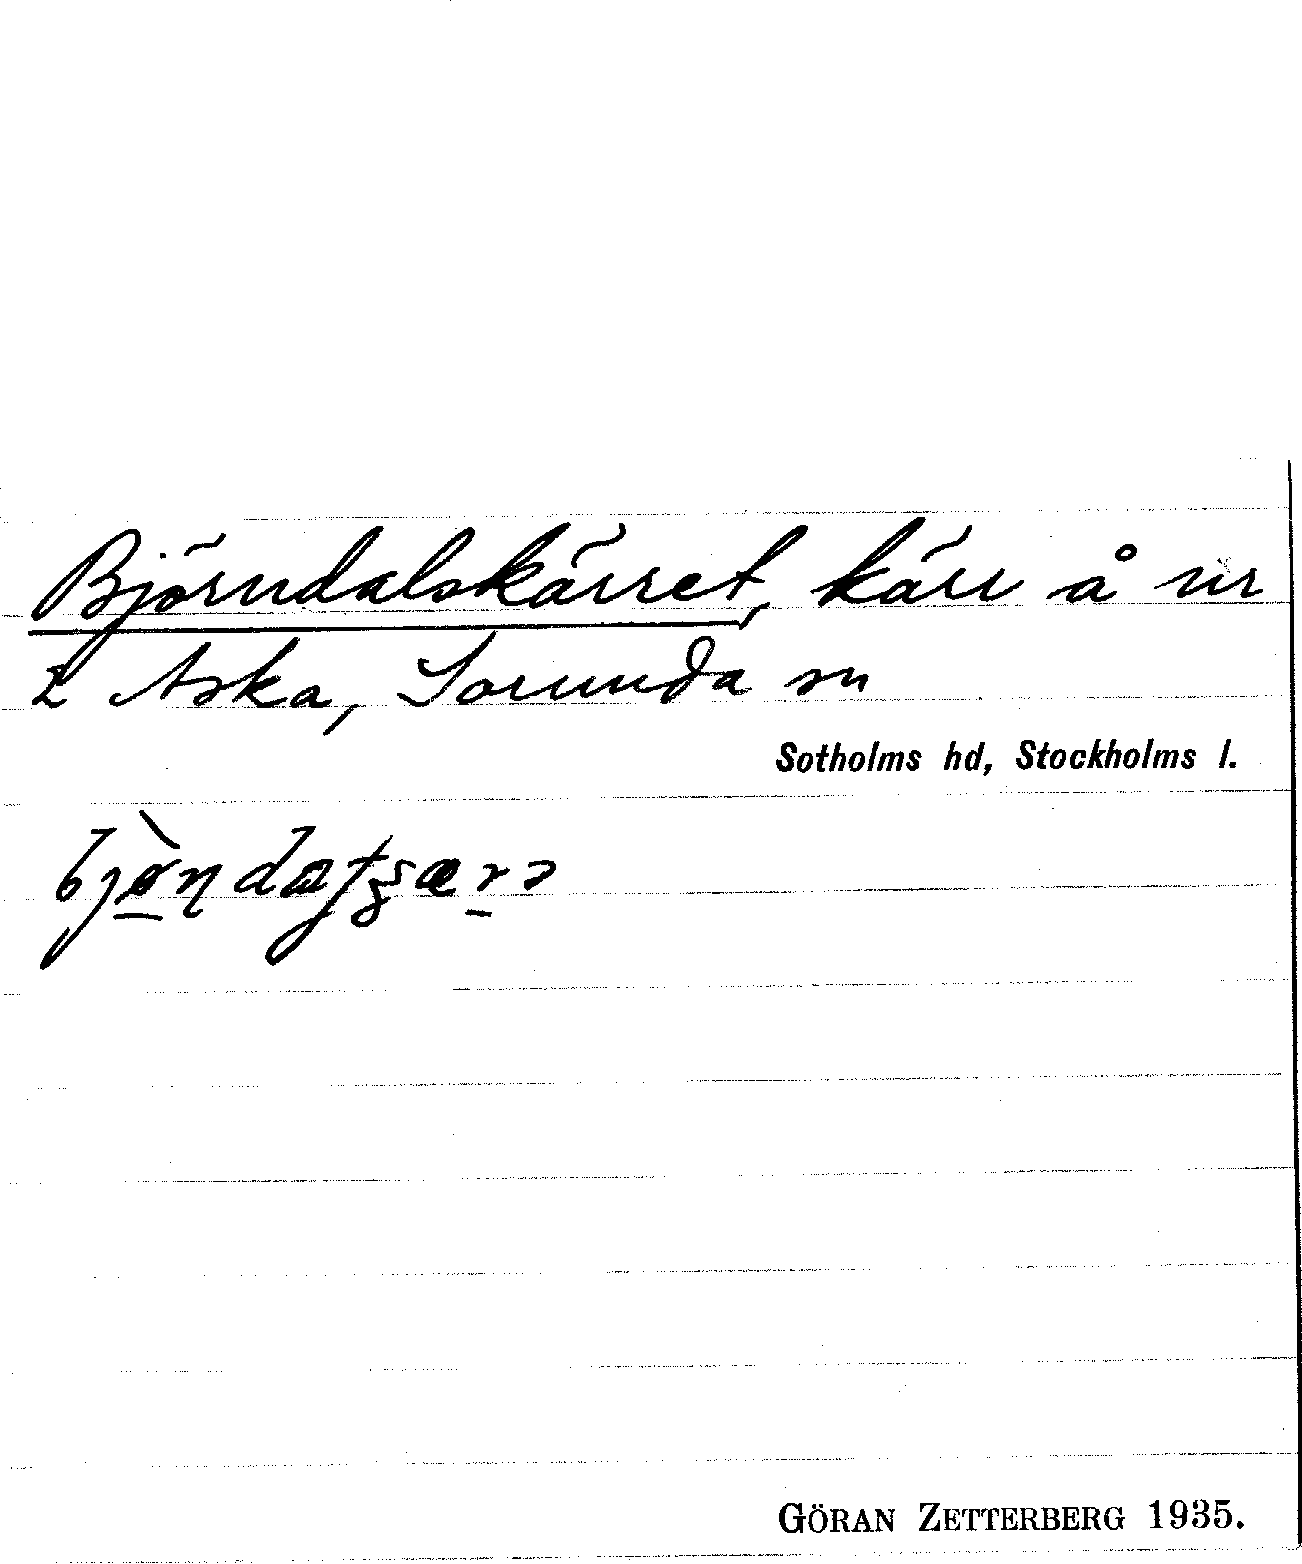 Björndalskärret, kärr å nr
2 Aska, Sorunda sn
Sotholms hd, Stockholms l.
GÖRAN ZETTERBERG 1935.